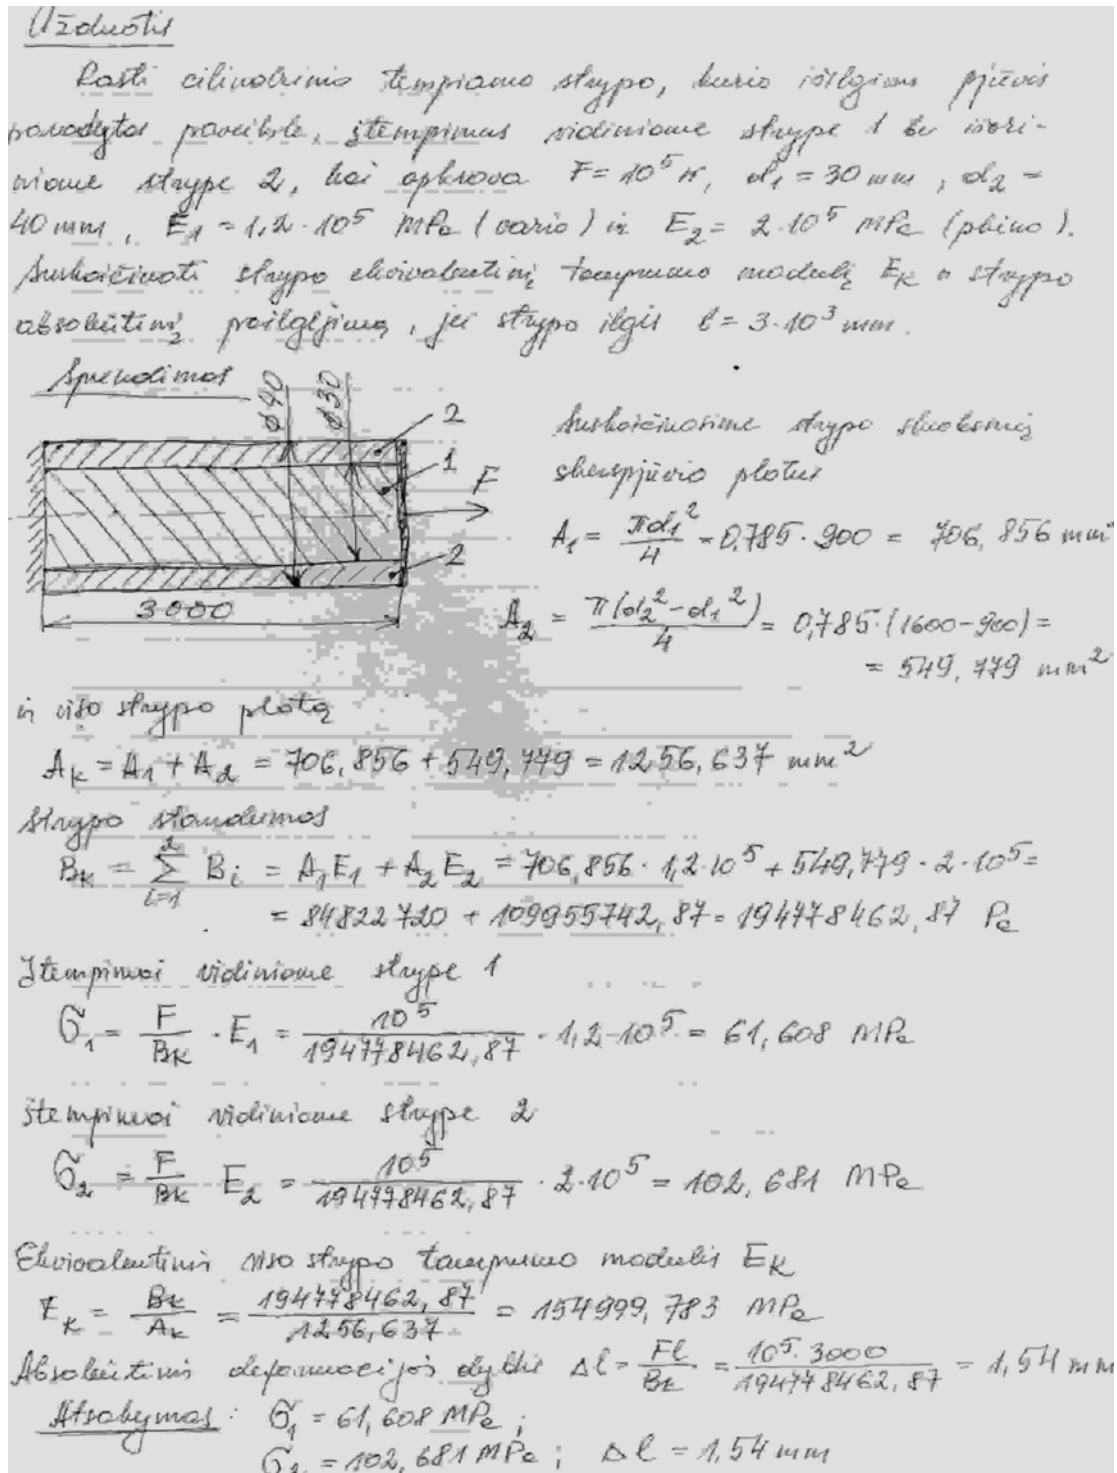 Užduotis
Rasti cilindrinio tempiamo strypo, kurio išilginis pjūvis
parodytas paveiksle, įtempimus vidiniame strype 1 bei išori-
niame strype 2, kai apkrova F = 10⁵ N, d₁ = 30 mm, d₂ =
40 mm, E₁ = 1,2 · 10⁵ MPa (vario) ir E₂ = 2 · 10⁵ MPa (plieno).
Suskaičiuoti strypo ekvivalentinį tamprumo modulį Eₖ ir strypo
absoliutinį pailgėjimą, jei strypo ilgis l = 3 · 10³ mm.
Sprendimas
ø40
ø30
2
1
F
2
3000
Suskaičiuosime strypo sluoksnių
skerspjūvio plotus
A₁ = πd₁²/4 = 0,785 · 900 = 706,856 mm²
A₂ = π(d₂² - d₁²)/4 = 0,785 · (1600 - 900) =
= 549,779 mm²
ir viso strypo plotą
Aₖ = A₁ + A₂ = 706,856 + 549,779 = 1256,637 mm²
Strypo standumas
Bₖ = ∑ᵢ₌₁² Bᵢ = A₁E₁ + A₂E₂ = 706,856 · 1,2 · 10⁵ + 549,779 · 2 · 10⁵ =
= 84822720 + 109955742,87 = 194778462,87 Pa
Įtempimai vidiniame strype 1
σ₁ = F/Bₖ · E₁ = 10⁵/194778462,87 · 1,2 · 10⁵ = 61,608 MPa
įtempimai vidiniame strype 2
σ₂ = F/Bₖ E₂ = 10⁵/194778462,87 · 2 · 10⁵ = 102,681 MPa
Ekvivalentinis viso strypo tamprumo modulis Eₖ
Eₖ = Bₖ/Aₖ = 194778462,87/1256,637 = 154999,783 MPa
Absoliutinis deformacijos dydis Δl = Fl/Bₖ = 10⁵ · 3000/194778462,87 = 1,54 mm
Atsakymas: σ₁ = 61,608 MPa;
σ₂ = 102,681 MPa; Δl = 1,54 mm